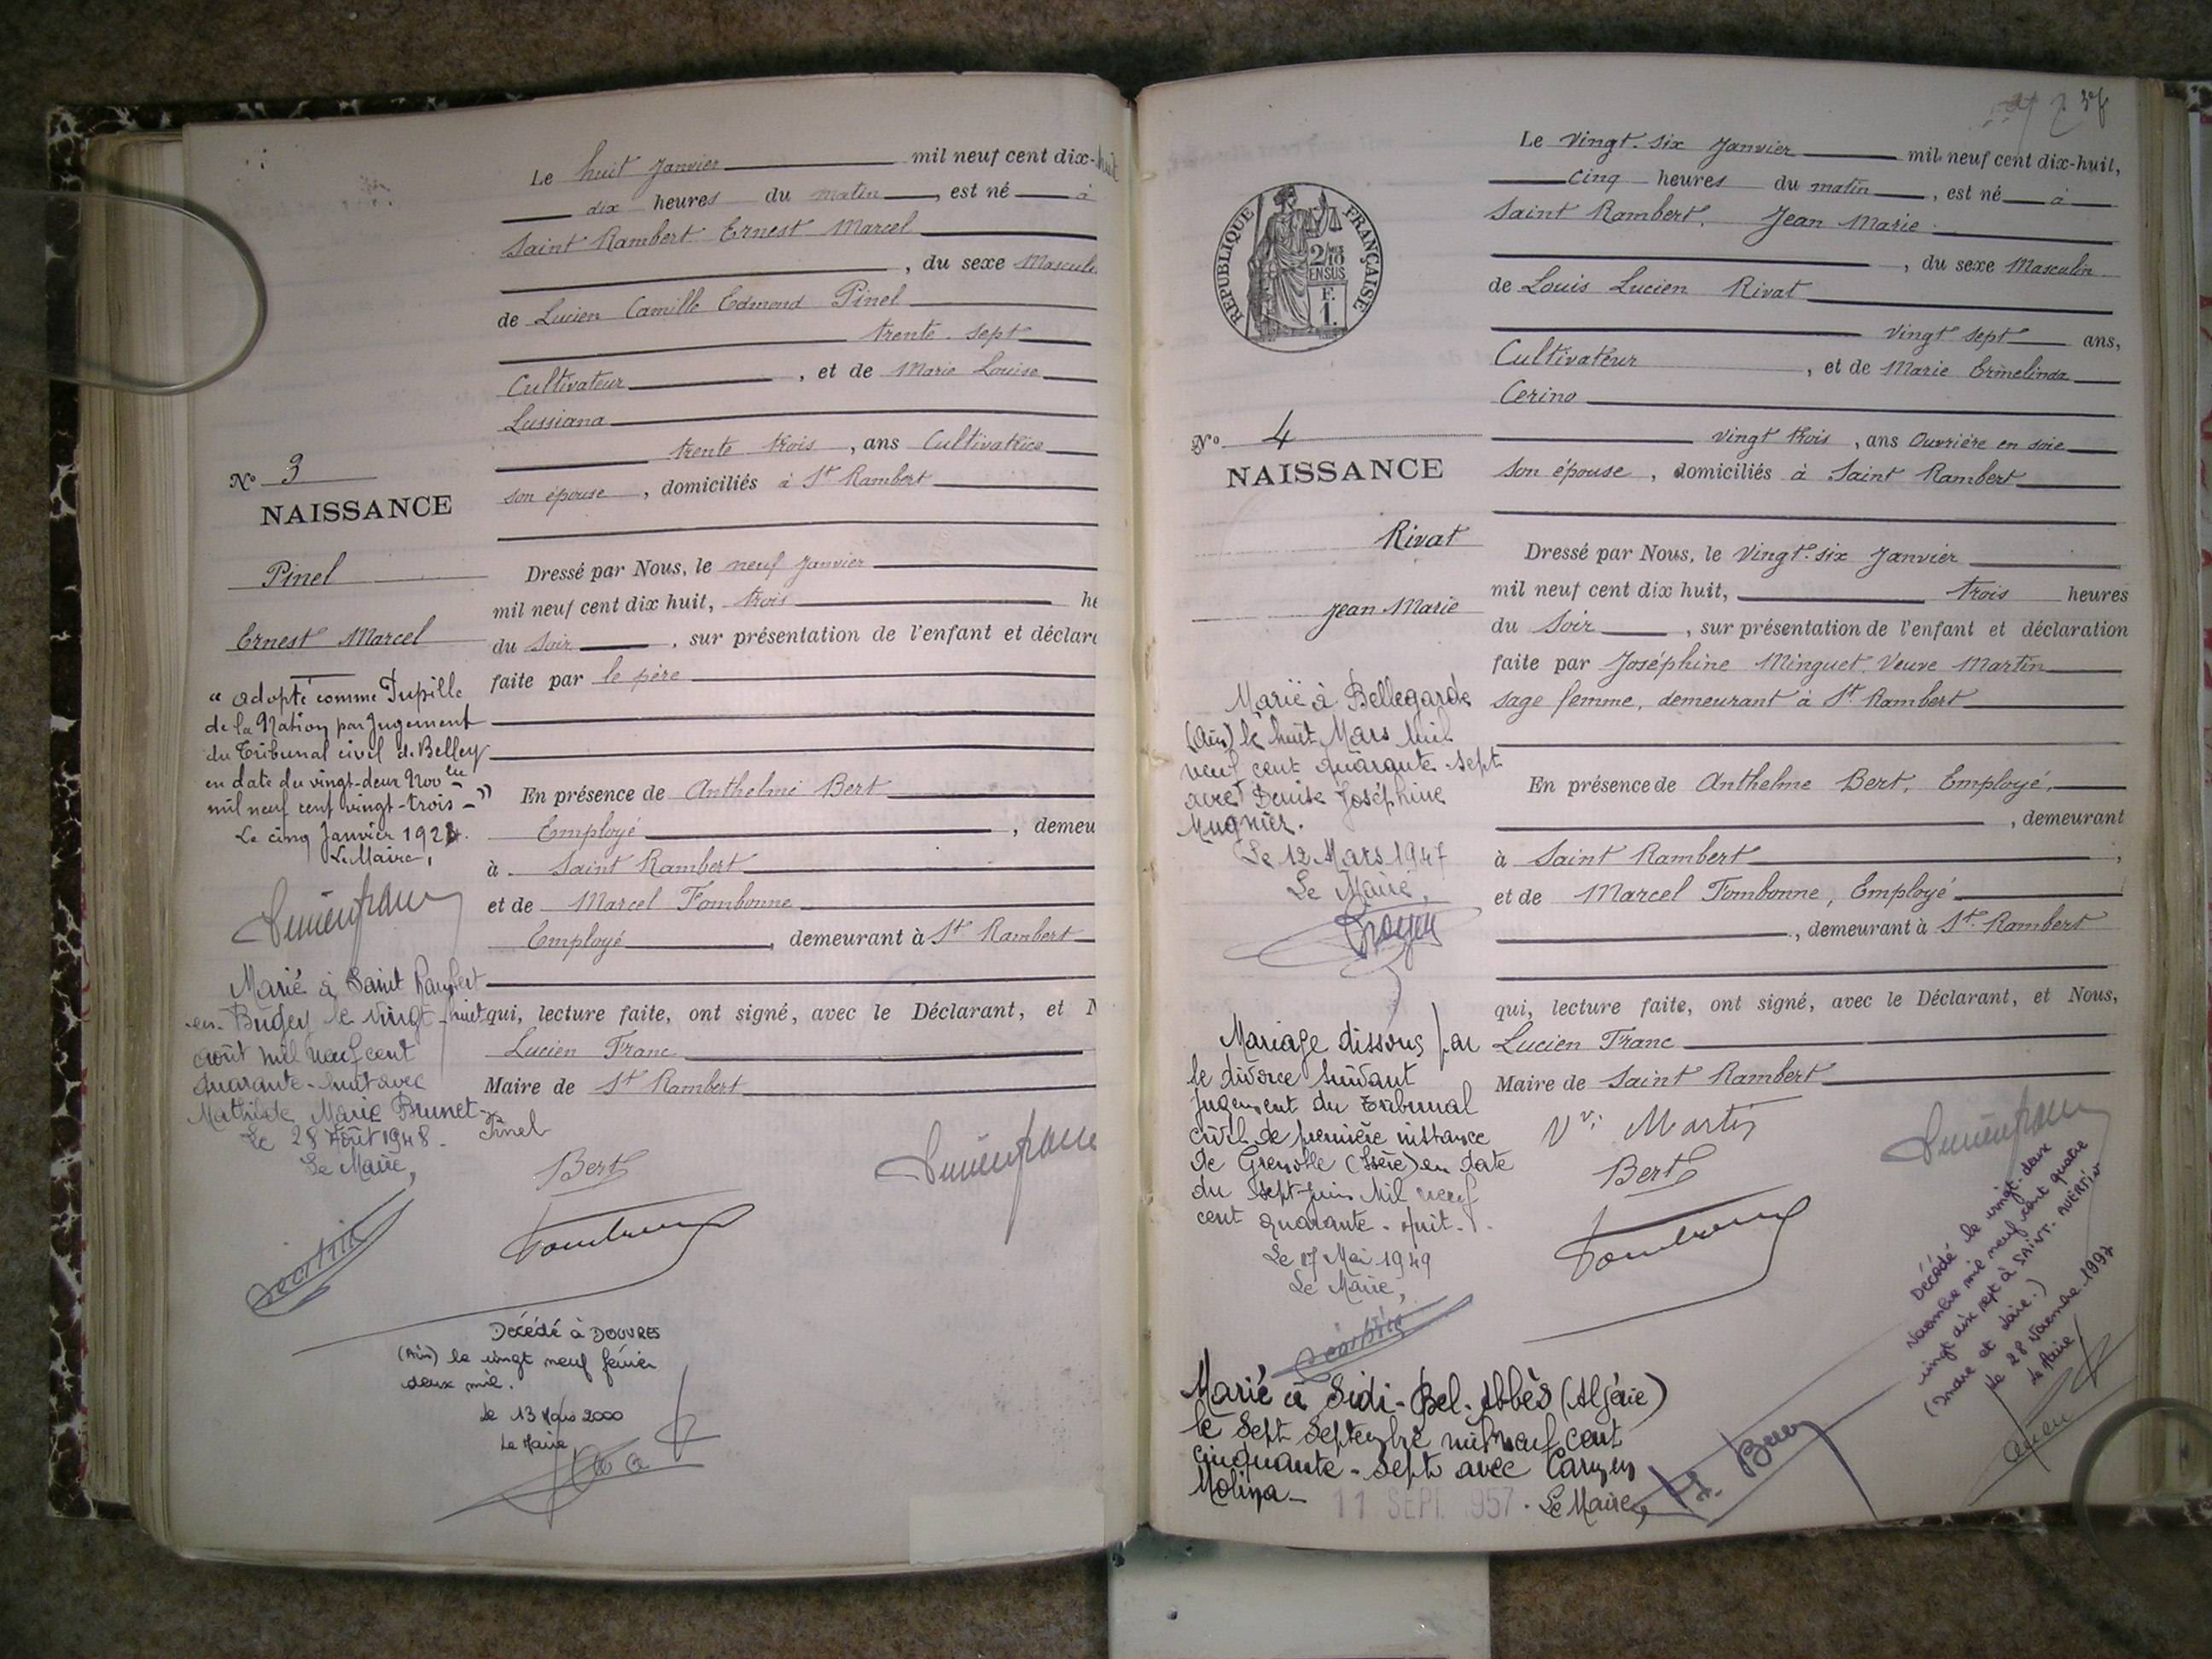 Le huit Janvier mil neuf cent dix-huit
dix heures du matin, est né à
Saint Rambert Ernest Marcel
, du sexe Mascul
de Lucien Camille Edmond Pinel
trente-sept
Cultivateur, et de Marie Louise
Lussiana
trente trois, ans Cultivatrice
son épouse, domiciliés à St Rambert
No 3
NAISSANCE
Pinel
Ernest Marcel
Dressé par Nous, le neuf Janvier
mil neuf cent dix huit, trois he
du Soir, sur présentation de l'enfant et déclara
faite par le père
En présence de Anthelme Bert
Employé, demeu
à Saint Rambert
et de Marcel Fombonne
Employé, demeurant à St Rambert
qui, lecture faite, ont signé, avec le Déclarant, et N
Lucien Franc
Maire de St Rambert
Pinel
Bert
"adopté comme Pupille
de la Nation par Jugement
du Tribunal civil de Belley
en date du vingt-deux Nov
mil neuf cent vingt-trois"
Le cinq Janvier 1924.
Le Maire,
Marié à Saint Rambert
en-Bugey le vingt-huit
août mil neuf cent
quarante-huit avec
Mathilde Marie Brunet-
Le 28 Août 1948.
Le Maire,
Décédé à DOUVRES
(Ain) le vingt neuf février
deux mil.
Le 13 Mars 2000
Le Maire
RÉPUBLIQUE FRANÇAISE
2/10
EN SUS
F.
1.
Le Vingt-six Janvier mil neuf cent dix-huit,
cinq heures du matin, est né à
Saint Rambert, Jean Marie
, du sexe Masculin
de Louis Lucien Rivat
vingt sept ans,
Cultivateur, et de Marie Ermelinda
Cerino
vingt trois, ans Ouvrière en soie
son épouse, domiciliés à Saint Rambert
No 4
NAISSANCE
Rivat
Jean Marie
Dressé par Nous, le Vingt-six Janvier
mil neuf cent dix huit, trois heures
du Soir, sur présentation de l'enfant et déclaration
faite par Joséphine Minguet Veuve Martin
sage femme, demeurant à St Rambert
En présence de Anthelme Bert, Employé,
, demeurant
à Saint Rambert,
et de Marcel Fombonne, Employé
, demeurant à St. Rambert
qui, lecture faite, ont signé, avec le Déclarant, et Nous,
Lucien Franc
Maire de Saint Rambert
Vve Martin
Bert
Marié à Bellegarde
(Ain) le huit Mars mil
neuf cent quarante-sept
avec Denise Joséphine
Mugnier.
Le 12 Mars 1947
Le Maire,
Mariage dissous par
le divorce suivant
jugement du Tribunal
civil de première instance
de Grenoble (Isère) en date
du sept Juin Mil neuf
cent quarante-huit.
Le 17 Mai 1949
Le Maire,
Marié à Sidi-Bel-Abbès (Algérie)
le Sept Septembre mil neuf cent
cinquante-sept avec Carmen
Molina-
11 SEPT. 1957. Le Maire,
Décédé le vingt-deux
Novembre mil neuf cent quatre
vingt dix sept à SAINT-AVERTIN
(Indre et Loire.)
Le 28 Novembre 1997
Le Maire